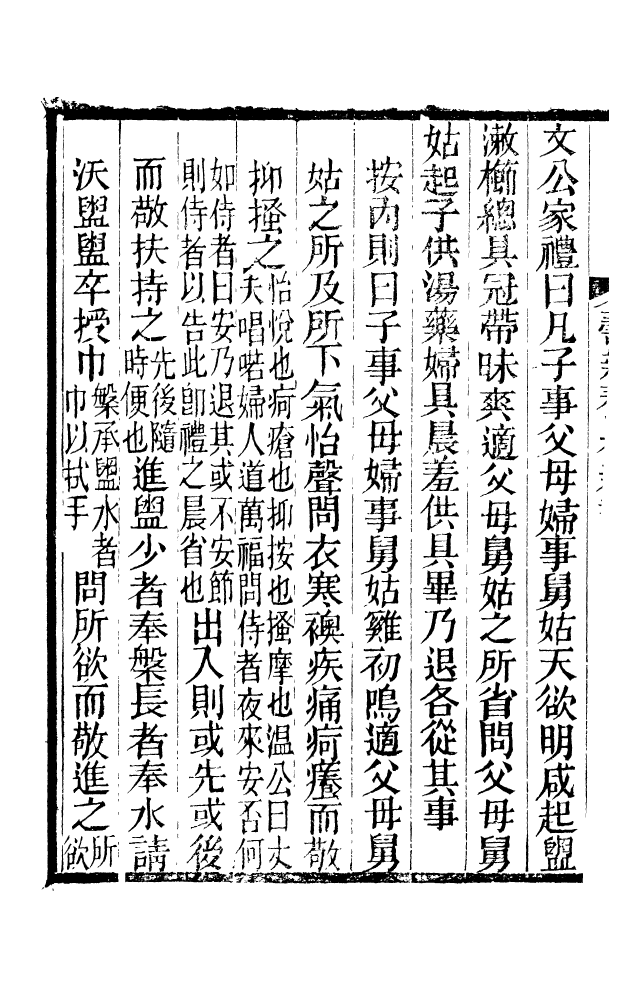 文公家禮曰凡子事父母婦事舅姑天欲明咸起盥
漱櫛總具冠帶昧爽適父母舅姑之所省問父母舅
姑起子供湯藥婦具晨羞供具畢乃退各從其事
按內則曰子事父母婦事舅姑雞初鳴適父母舅
姑之所及所下氣怡聲問衣寒襖疾痛疴癢而敬
抑搔之怡悅也疴瘡也抑按也搔摩也溫公曰丈
夫唱喏婦人道萬福問侍者夜來安否何
如侍者曰安乃退其或不安節
則侍者以告此卽禮之晨省也出入則或先或後
而敬扶持之先後隨
時便也進盥少者奉槃長者奉水請
沃盥盥卒授巾槃承盥水者
巾以拭手問所欲而敬進之所
欲